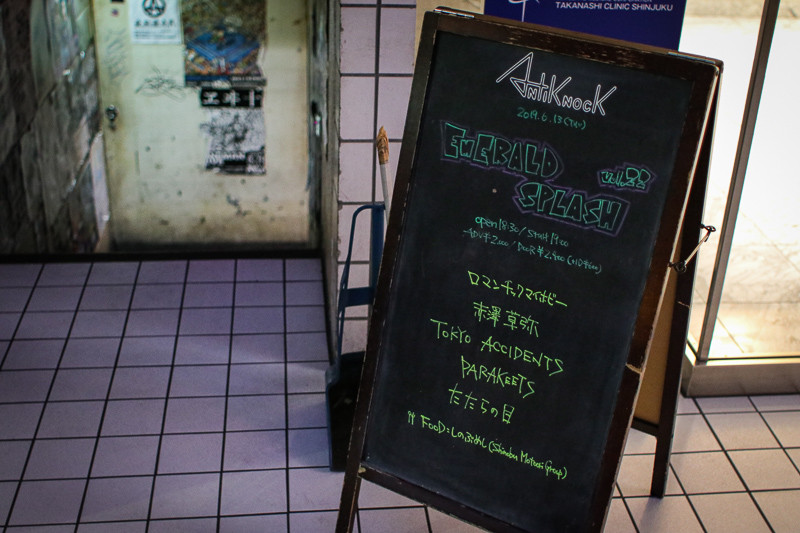 TAKANASHI CLINIC SHINJUKU
AntiKnocK
2019.6.13(Thu)
EMERALD
SPLASH
open 18:30 / Start 19:00
ADV ¥2,000 / DOOR ¥2,400
ロマンチックマイホビー
赤澤 草弥
TOKYO ACCIDENTS
PARAKEETS
たたらの目
FOOD=しのぶめし(Shinobu Motoori Group)